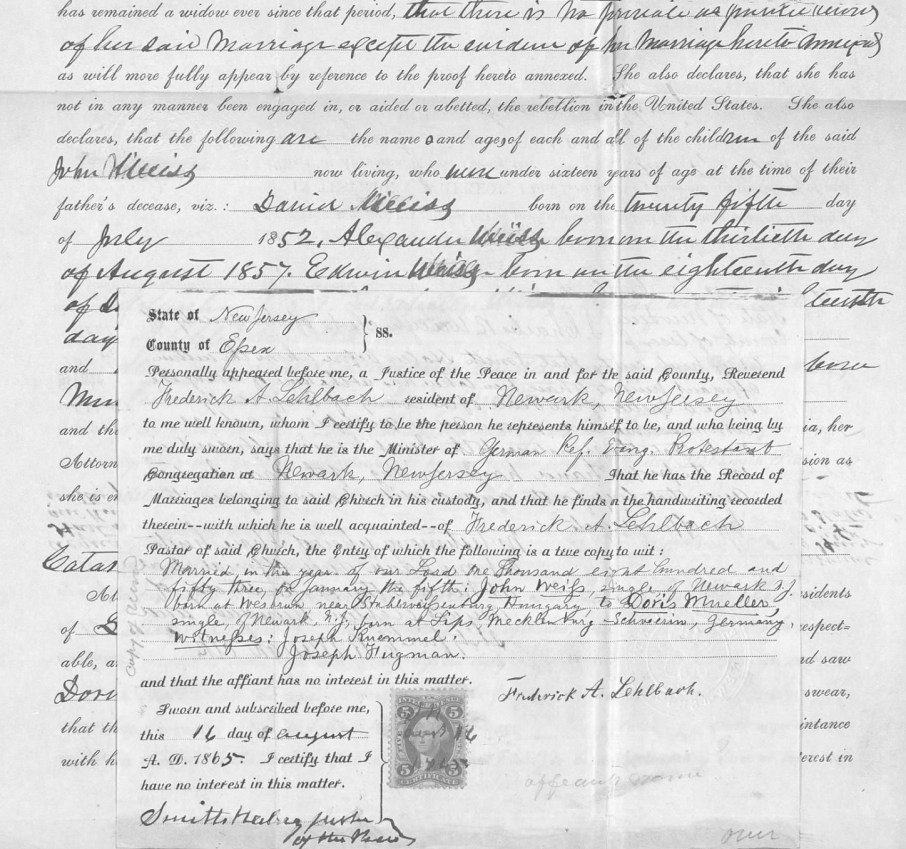 has remained a widow ever since that period, that there is no private as public record
of her said Marriage except the evidence of her Marriage hereto annexed
as will more fully appear by reference to the proof hereto annexed. She also declares, that she has
not in any manner been engaged in, or aided or abetted, the rebellion in the United States. She also
declares, that the following are the names and ages, of each and all of the children of the said
John Weiss now living, who were under sixteen years of age at the time of their
father's decease, viz.: David Weiss born on the twenty fifth day
of July 1852, Alexander Weiss born on the thirtieth day
of August 1857. Edwin Weiss born on the eighteenth day
of teenth
day
and born
and the her
Attorn sion as
she is e
State of New Jersey
County of Essex } ss.
Personally appeared before me, a Justice of the Peace in and for the said County, Reverend
Frederick A. Lehlbach resident of Newark, New Jersey
to me well known, whom I certify to be the person he represents himself to be, and who being by
me duly sworn, says that he is the Minister of German Ref. Evang. Protestant
Congregation at Newark, New Jersey That he has the Record of
Marriages belonging to said Church in his custody, and that he finds in the handwriting recorded
therein--with which he is well acquainted--of Frederick A. Lehlbach
Pastor of said Church, the Entry of which the following is a true copy to wit:
Married in the year of our Lord one thousand eight hundred and
fifty three, on January the fifth: John Weiss, single of Newark N.J.
born at near Stuhlweissenburg, Hungary to Doris Mueller,
single, of Newark, N.J. born at Lips, Mecklenburg-Schwerin, Germany.
Witnesses: Joseph Kuemmel.
Joseph Hugman.
and that the affiant has no interest in this matter.
Frederick A. Lehlbach.
Sworn and subscribed before me,
this 16 day of August
A. D. 1865. I certify that I
have no interest in this matter.
Justice
of the Peace
5 5
5 5
CERTIFICATE
sidents
of spect-
able, a nd saw
Dori swear,
that th intance
with h erest in